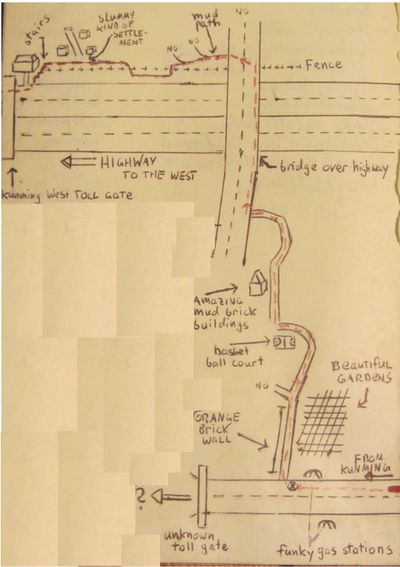 NO
stairs
SLUMMY
KIND OF
SETTLE-
MENT
NO
NO
NO
mud
path
Fence
HIGHWAY
TO THE WEST
bridge over highway
Kunming WEST TOLL GATE
AMAZING
mud brick
buildings
basket
ball court
BEAUTIFUL
GARDENS
NO
ORANGE
Brick
WALL
FROM
KUNMING
?
unknown
toll gate
funky gas stations